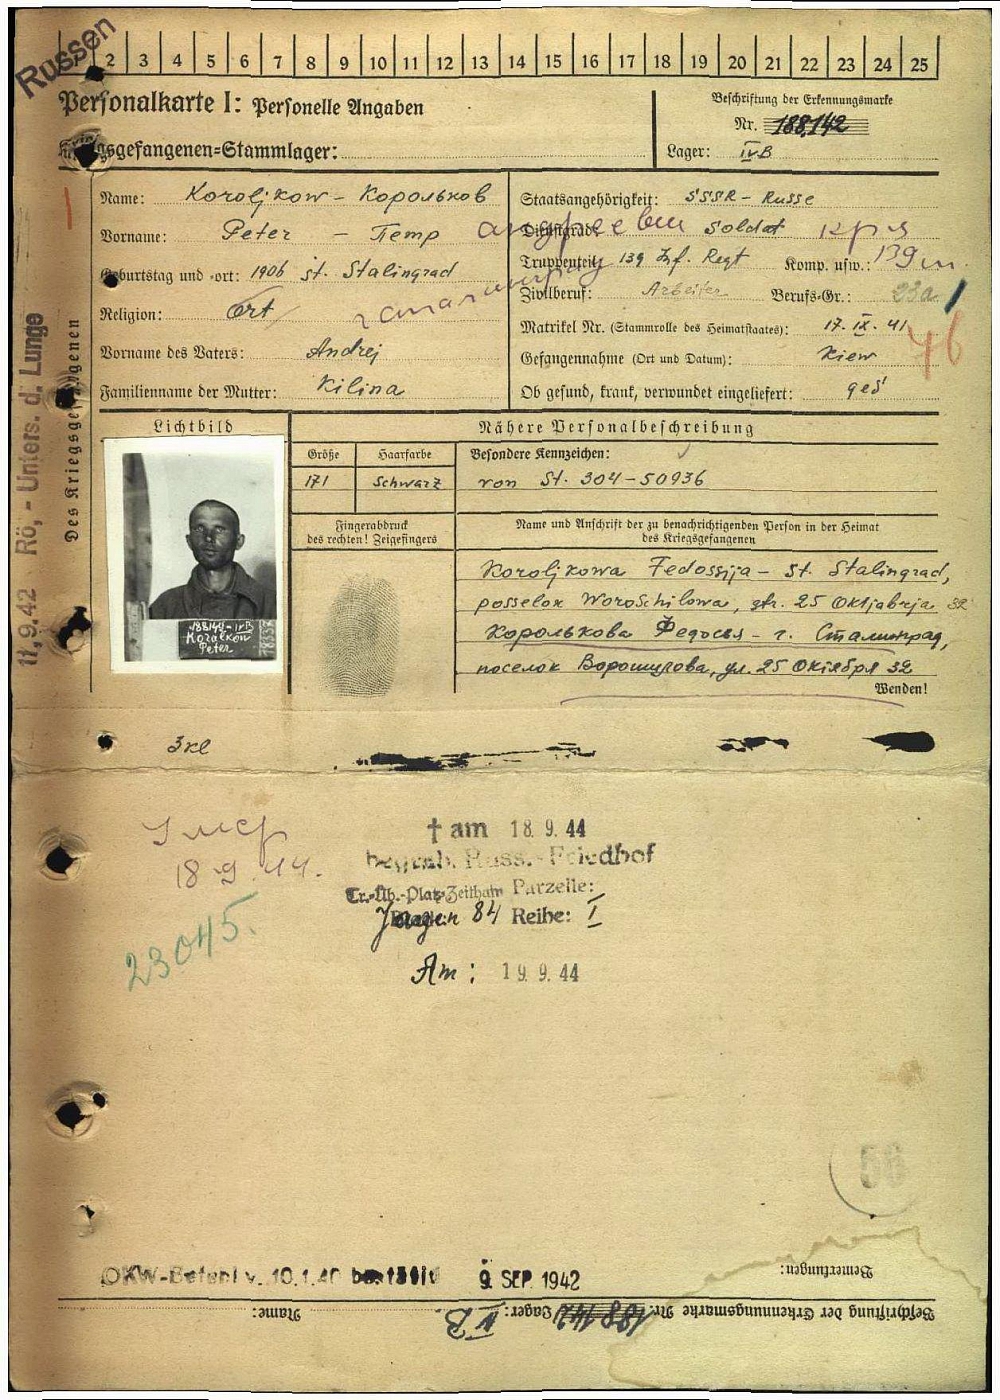 Russen
2 3 4 5 6 7 8 9 10 11 12 13 14 15 16 17 18 19 20 21 22 23 24 25
Personalkarte I: Personelle Angaben
Beschriftung der Erkennungsmarke
Nr. 188142
Kriegsgefangenen=Stammlager:
Lager: IVB
Des Kriegsgefangenen
11.9.42 Rö,- Unters. d. Lunge
Name: Koroljkow - Корольков
Vorname: Peter - Петр андреевич
Geburtstag und -ort: 1906 St. Stalingrad
г сталинград
Religion: Ort
Vorname des Vaters: Andrej
Familienname der Mutter: Kilina
Staatsangehörigkeit: SSSR - Russe
Dienstgrad: Soldat кр-ц
Truppenteil: 139 Inf. Regt Komp. usw.: 139
Zivilberuf: Arbeiter Berufs-Gr.: 23a
Matrikel Nr. (Stammrolle des Heimatstaates): 17. IX. 41
76
Gefangennahme (Ort und Datum): Kiew
Ob gesund, krank, verwundet eingeliefert: ges
Lichtbild
188142-IVB
Koralkow
Peter
Nähere Personalbeschreibung
Größe Haarfarbe Besondere Kennzeichen:
171 Schwarz von St. 304-50936
Fingerabdruck
des rechten! Zeigefingers
Name und Anschrift der zu benachrichtigenden Person in der Heimat
des Kriegsgefangenen
Koroljkowa Fedossija - St. Stalingrad,
posselok Woroschilowa, str. 25 Oktjabrja 32
Королькова Федосья - г. Сталинград,
поселок Ворошилова, ул. 25 Октября 32
Wenden!
3 кл
Умер
18.9.44.
23045.
† am 18. 9. 44
begrab. Russ.-Friedhof
Tr.-Üb.-Platz Zeithain Parzelle:
Jagen 84 Reihe: I
Am: 19. 9. 44
58
OKW-Befehl v. 10.1.40 bestätigt 9. SEP. 1942
Bemerkungen:
Beschriftung der Erkennungsmarke Nr. 188142 Lager: IV B Name: